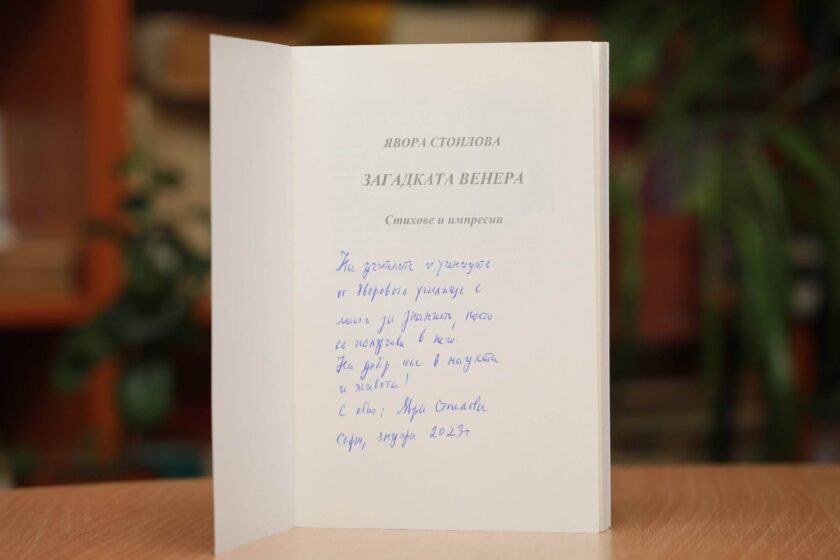 ЯВОРА СТОИЛОВА
ЗАГАДКАТА ВЕНЕРА
Стихове и импресии
На учителите и учениците
от Яворовото училище с
за знанията, което
се получава в него.
На добър час в науката
и живота!
С обич: Явора Стоилова
София, януари 2023г